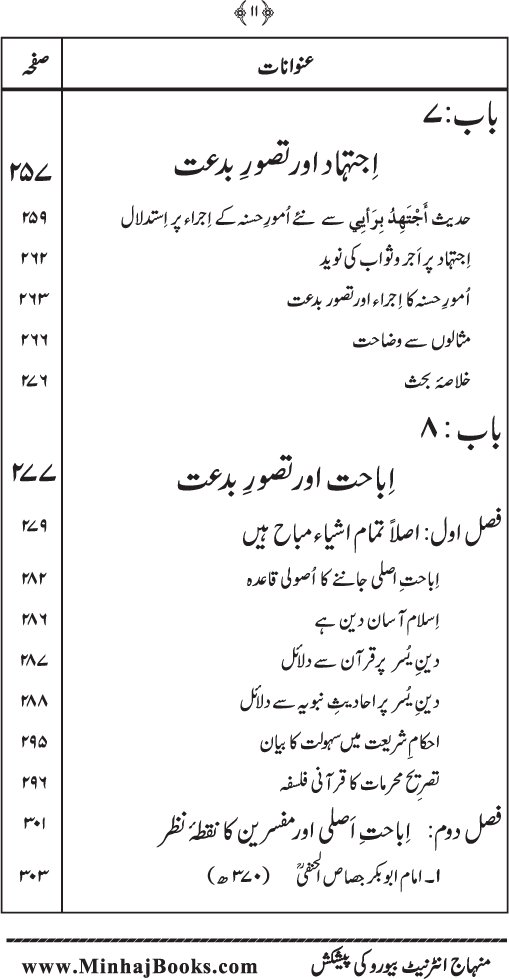 ﴿ ۱۱ ﴾
عنوانات صفحہ
باب: ۷
اِجتہاد اور تصورِ بدعت ۲۵۷
حدیث أَجْتَهِدُ بِرَأيِي سے نئے اُمورِ حسنہ کے اِجراء پر اِستدلال ۲۵۹
اِجتہاد پر اَجر و ثواب کی نوید ۲۶۲
اُمورِ حسنہ کا اِجراء اور تصور بدعت ۲۶۳
مثالوں سے وضاحت ۲۶۶
خلاصۂ بحث ۲۷۶
باب : ۸
اِباحت اور تصورِ بدعت ۲۷۷
فصل اول: اصلاً تمام اشیاء مباح ہیں ۲۷۹
اِباحتِ اصلی جاننے کا اُصولی قاعدہ ۲۸۲
اِسلام آسان دین ہے ۲۸۶
دینِ یُسر پر قرآن سے دلائل ۲۸۷
دینِ یُسر پر احادیثِ نبویہ سے دلائل ۲۸۸
احکامِ شریعت میں سہولت کا بیان ۲۹۵
تصریحِ محرمات کا قرآنی فلسفہ ۲۹۶
فصل دوم: اِباحتِ اَصلی اور مفسرین کا نقطۂ نظر ۳۰۱
۱۔ امام ابوبکر جصاص الحنفیؒ (۳۷۰ ھ) ۳۰۳
منہاج انٹرنیٹ بیورو کی پیشکش www.MinhajBooks.com